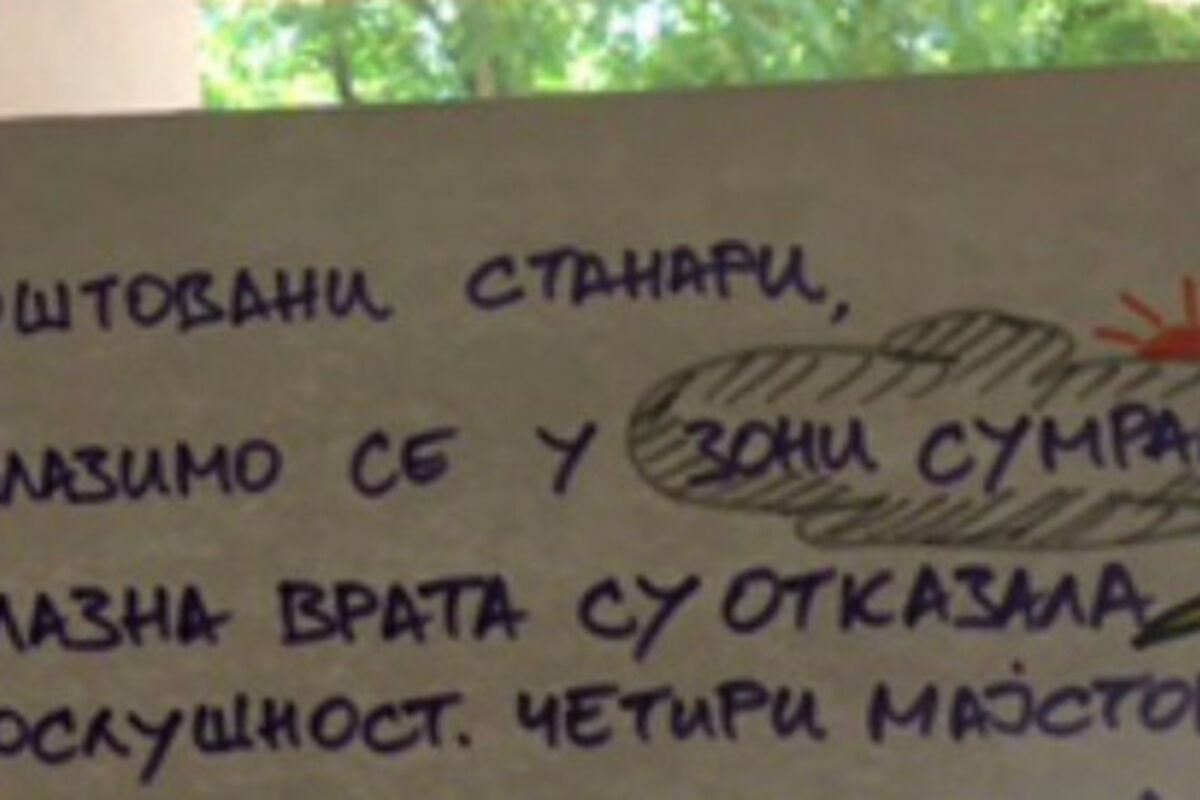 ОШТОВАНИ СТАНАРИ,
ЛАЗИМО СЕ У ЗОНИ СУМРА
ЛАЗНА ВРАТА СУ ОТКАЗАЛА
ОСЛУШНОСТ. ЧЕТИРИ МАЈСТОР